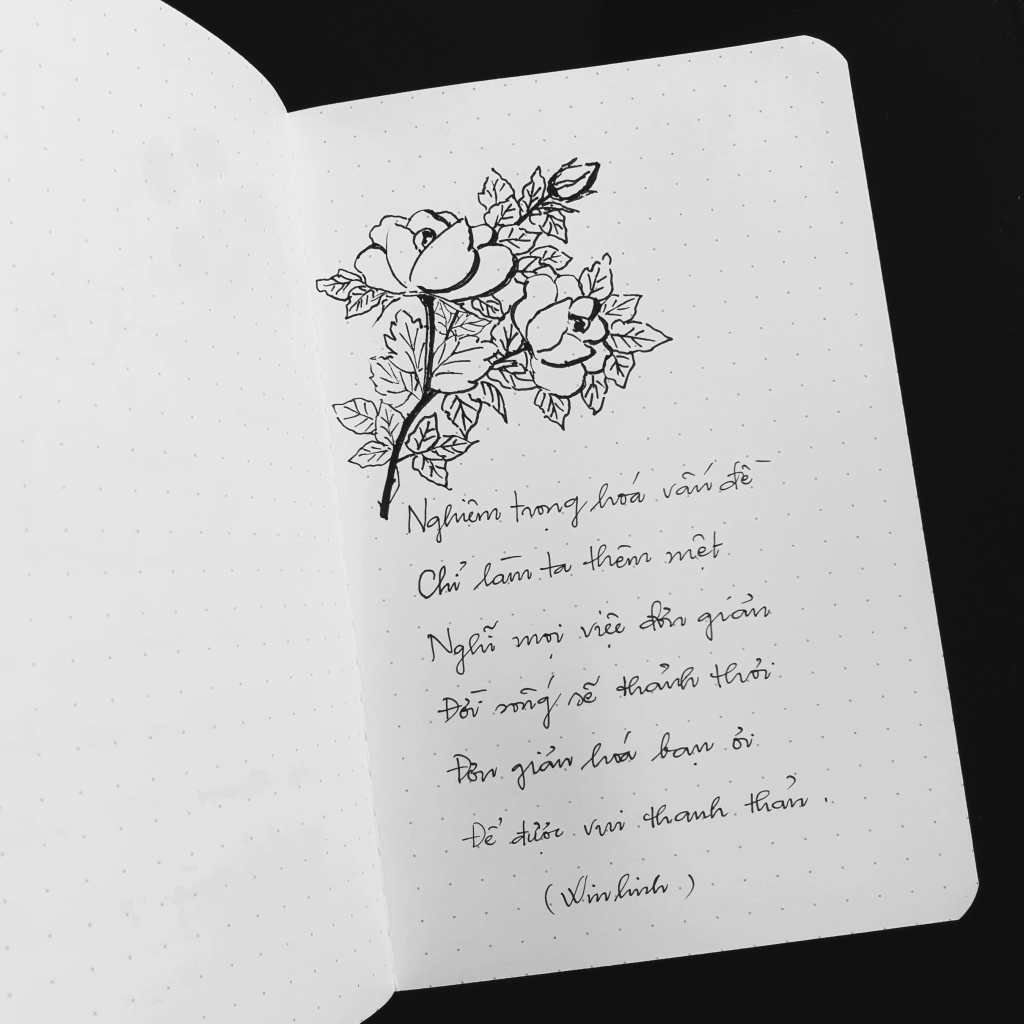 Nghiêm trọng hoá vấn đề
Chỉ làm ta thêm mệt
Nghĩ mọi việc đơn giản
Đời sống sẽ thảnh thơi
Đơn giản hoá bạn ơi
Để được vui thanh thản.
(Winlinh)